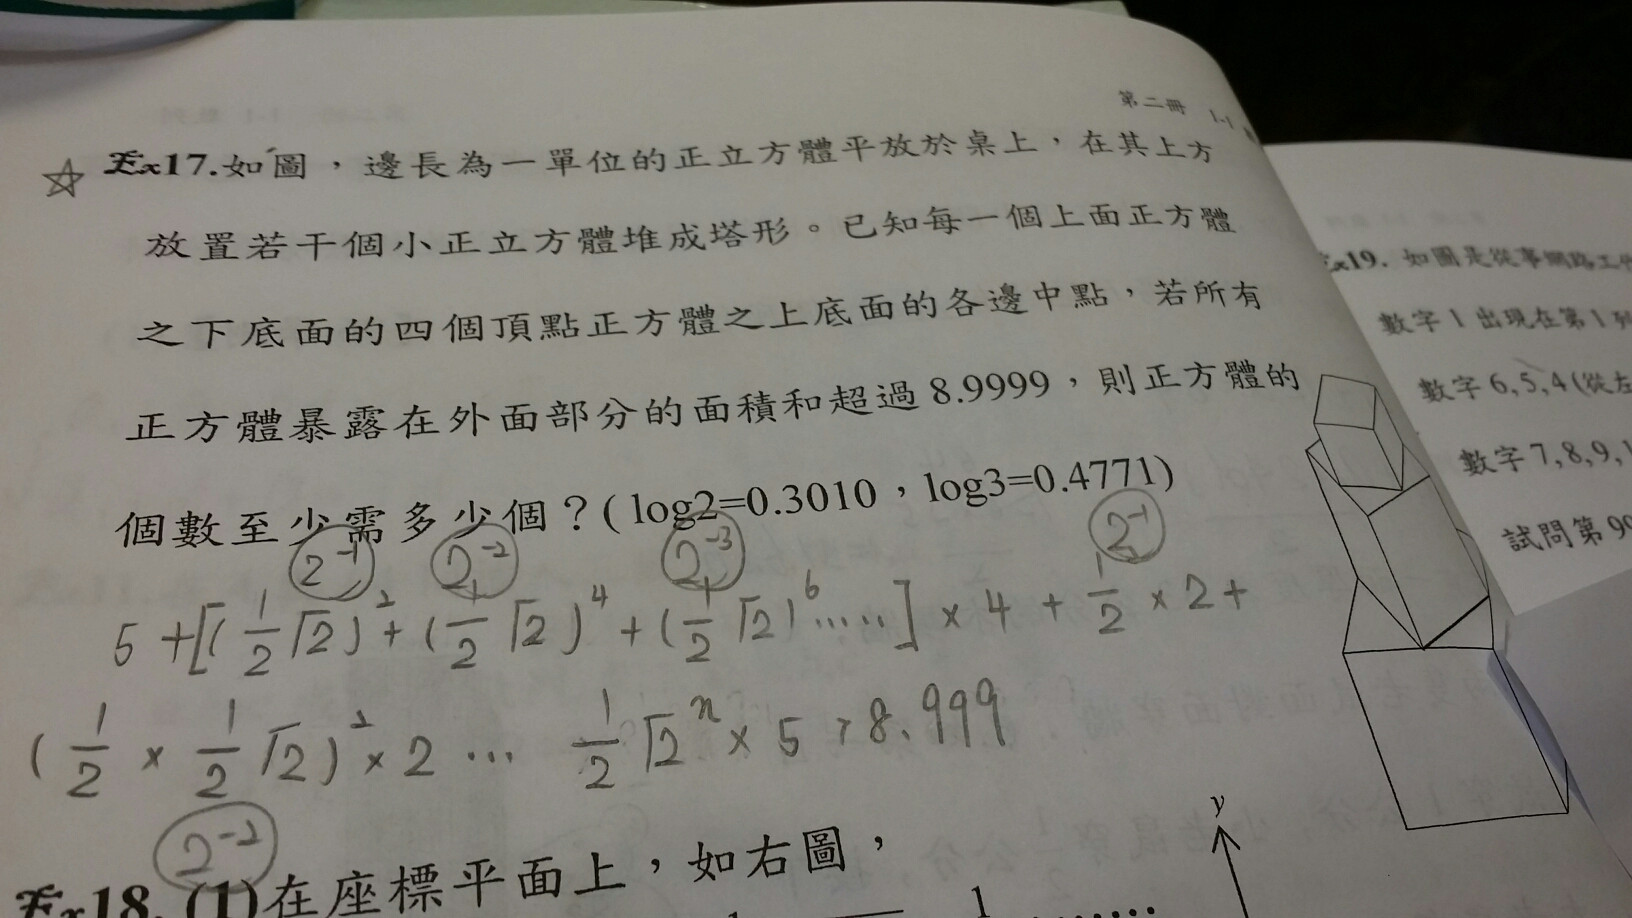 第二冊 1-1
Ex17.如圖，邊長為一單位的正立方體平放於桌上，在其上方
放置若干個小正立方體堆成塔形。已知每一個上面正方體
之下底面的四個頂點正方體之上底面的各邊中點，若所有
正方體暴露在外面部分的面積和超過8.9999，則正方體的
個數至少需多少個？(log2=0.3010，log3=0.4771)
2⁻¹ 2⁻² 2⁻³ 2⁻¹
5+[(1/2√2)²+(1/2√2)⁴+(1/2√2)⁶.....]×4+1/2×2+
(1/2×1/2√2)²×2... 1/2√2ⁿ×5>8.999
2⁻²
Ex18.(1)在座標平面上，如右圖，
y
1
Ex19. 如圖是從事網路工
數字1出現在第1列
數字6,5,4(從左
數字7,8,9,1
試問第99